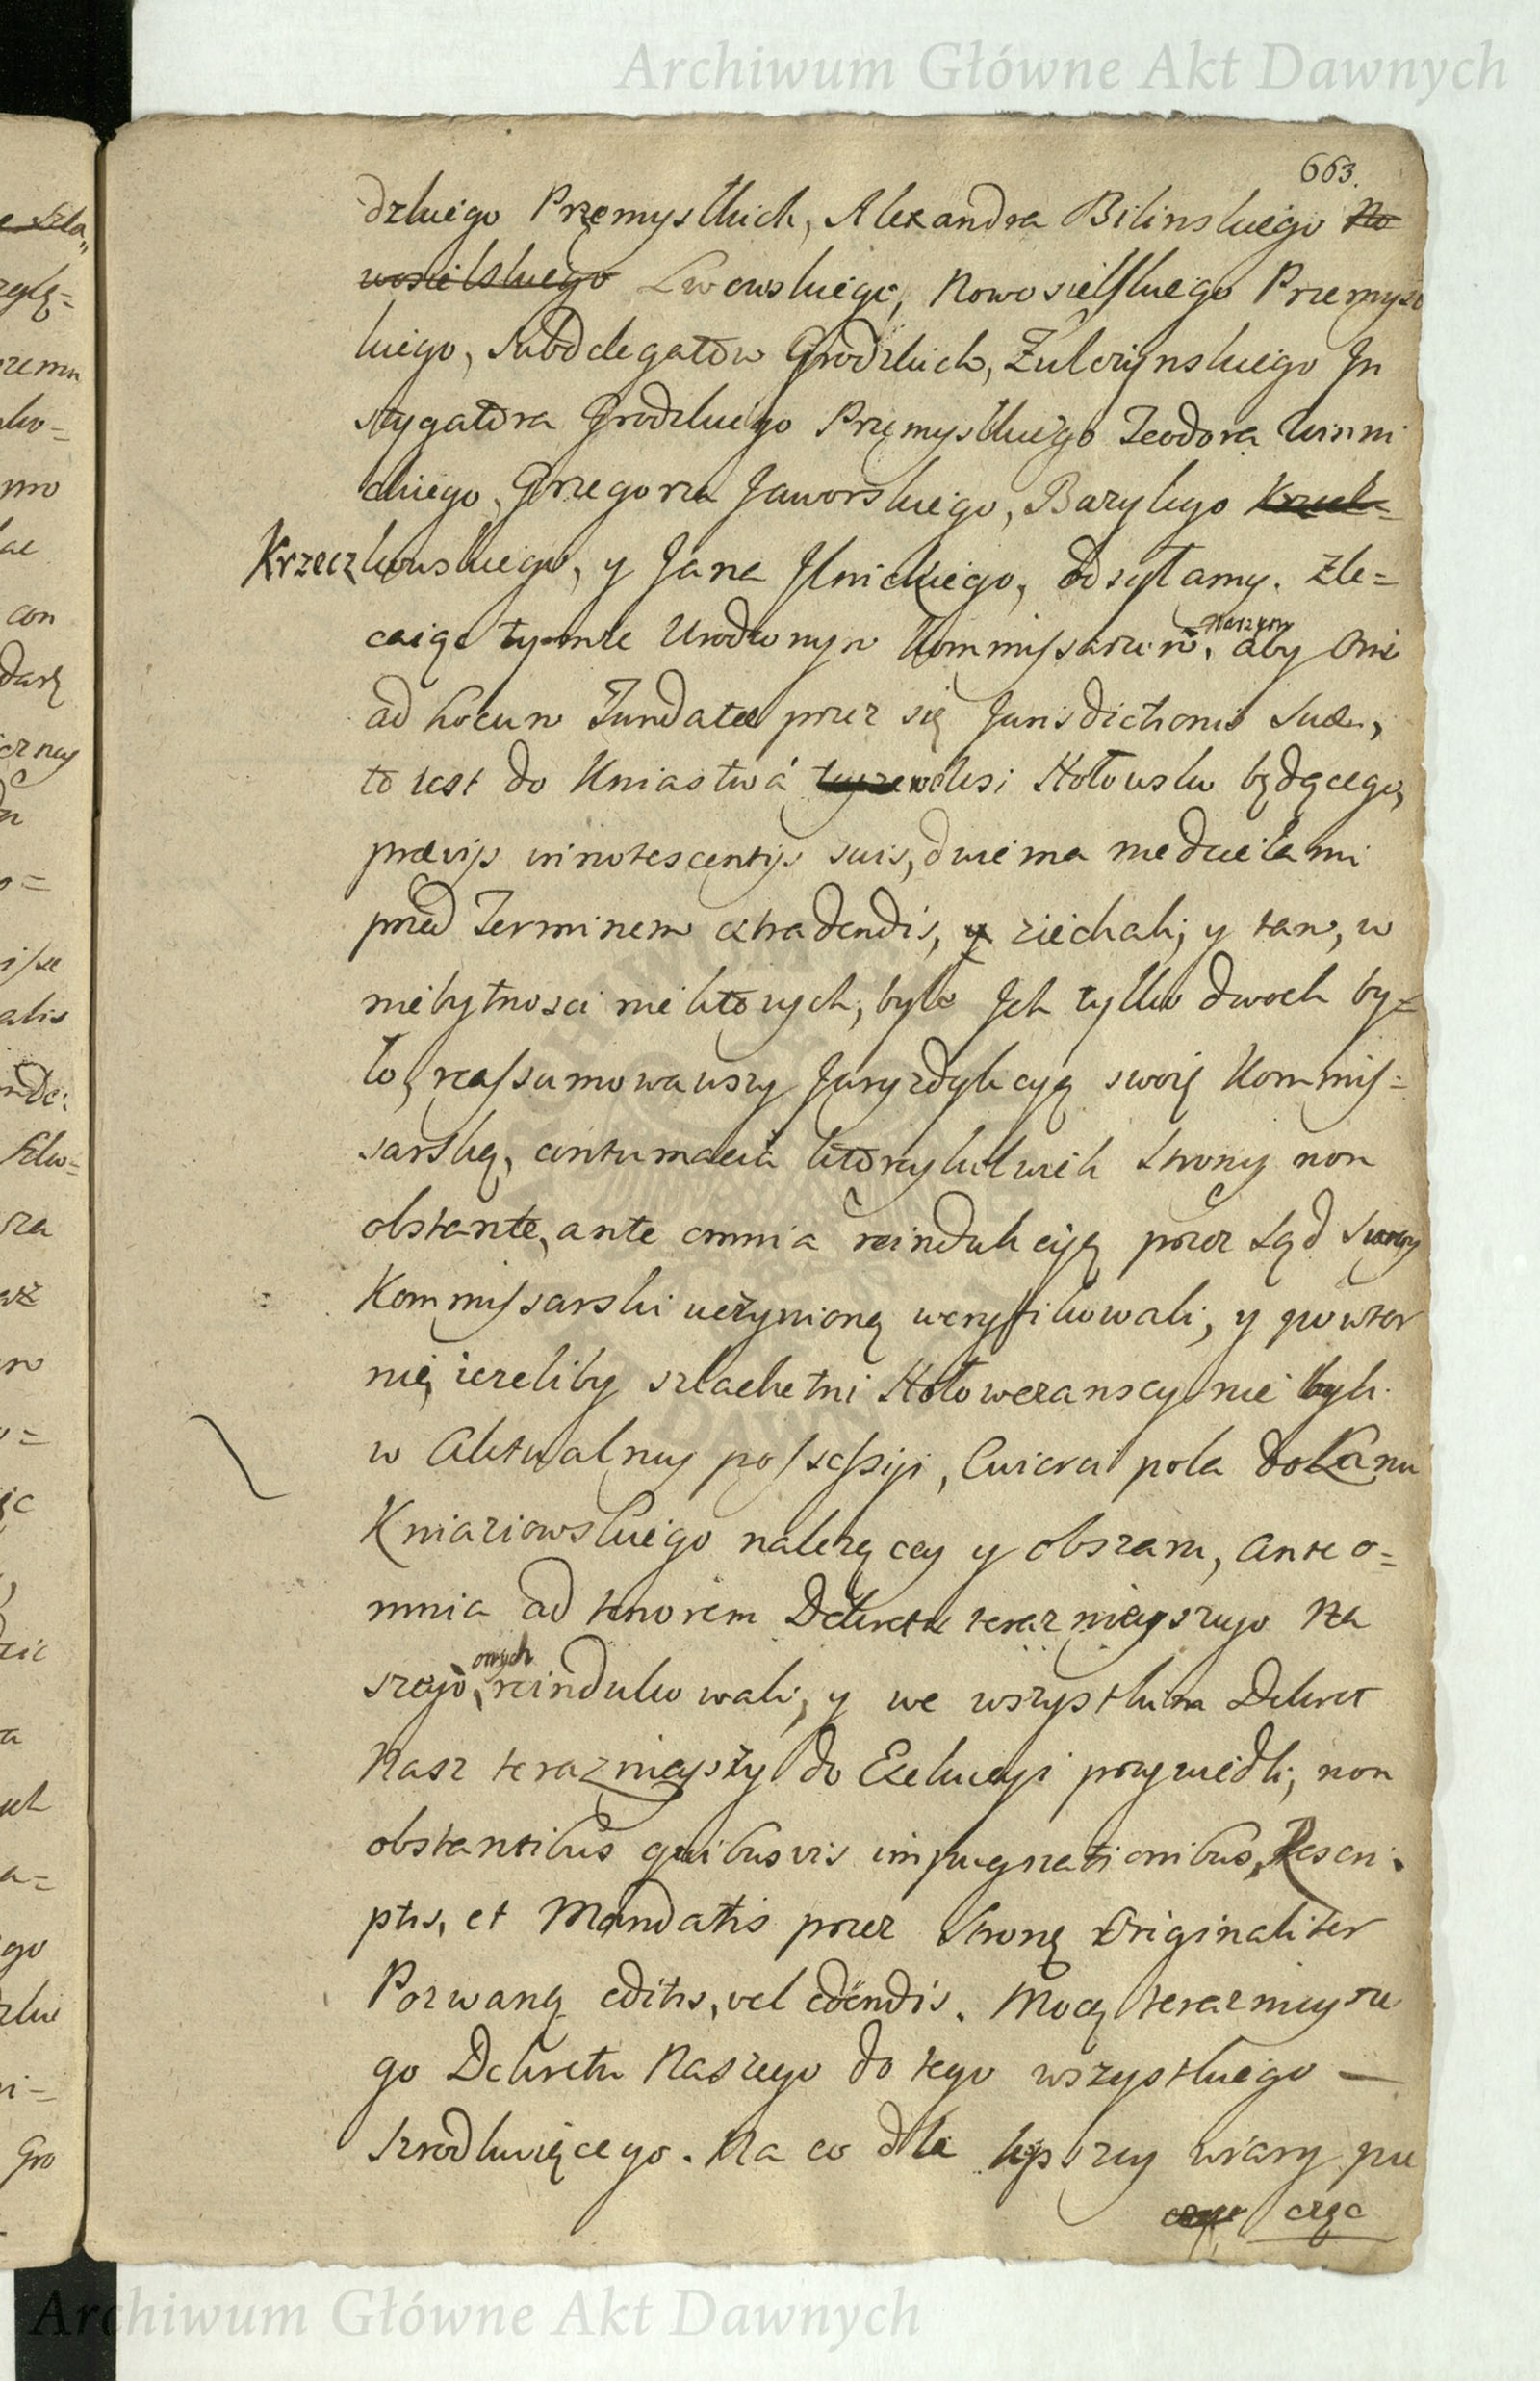 Archiwum Główne Akt Dawnych
663.
dzkiego Przemyslkich, Alexandra Bilinskiego No
wosielskiego Lwowskiego, Nowosielskiego Przemysl
kiego, Subdelegatow Grodzkich, Zulczynskiego In
stygatora Grodzkiego Przemyslkiego Teodora Winni
ckiego, Grzegorza Jaworskiego, Bazylego Krzeck=
Krzeczkowskiego, y Jana Ilnickiego, odsyłamy. Zle=
caiąc tymze Urodzonym Kommissarzom Naszym, aby Oni
ad Locum Fundatae przez się Jurisdictionis Suae,
to iest do Kniastwa we wsi Hołowsku będącego,
praeviis innotescentiis suis, dwiema niedzielami
przed Terminem extradendis, y ziechali, y tam, w
niebytnosci niektorych, byle Ich tylko dwoch by=
ło, reassumowawszy Juryzdykcyą swoią Kommis=
sarską, contumacia ktoreykolwiek Strony non
obstante, ante omnia reindukcyą przez Sąd Swoy
Kommissarski uczynioną weryfikowali, y powtor
nie, iezeliby szlachetni Hołowczanscy nie byli
w Aktualney possessyi, Cwierci pola do Łanu
Kniaziowskiego nalezącey y obszaru, ante o=
mnia ad tenorem Dekretu teraznieyszego Na
szego, onych reindukowali, y we wszystkim Dekret
Nasz teraznieyszy do Exekucyi przywiedli, non
obstantibus quibusvis impugnationibus, Rescri=
ptis, et Mandatis przez Stronę Originaliter
Pozwaną editis, vel edendis. Mocą teraznieysze
go Dekretu Naszego do tego wszystkiego —
szrodkuiącego. Na co dla lepszey wiary pie
częc
Archiwum Główne Akt Dawnych